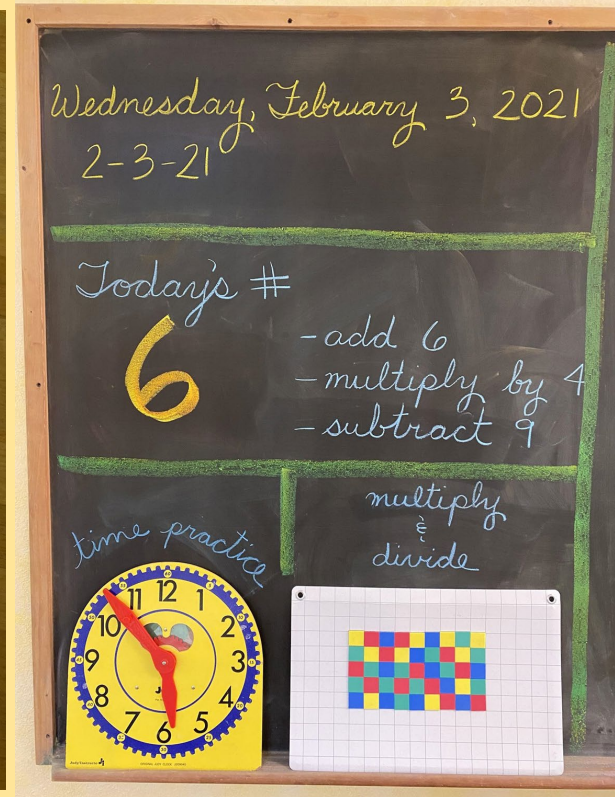 Wednesday, February 3, 2021
2-3-21
Today's #
6
- add 6
- multiply by 4
- subtract 9
time practice
multiply
&
divide
12
11
1
10
2
9
3
8
4
7
5
6